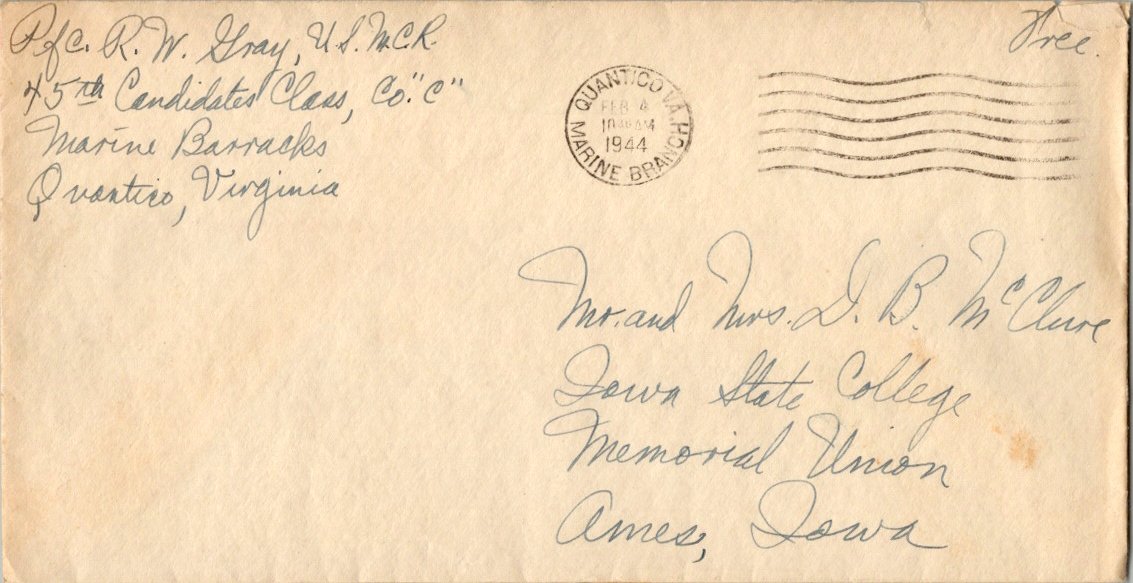 Pfc. R. W. Gray, U.S.M.C.R.
45th Candidates Class, Co. "C"
Marine Barracks
Quantico, Virginia
Free.
QUANTICO VA.
FEB 4
10 30 AM
1944
MARINE BRANCH
Mr. and Mrs. D. B. McClure
Iowa State College
Memorial Union
Ames, Iowa